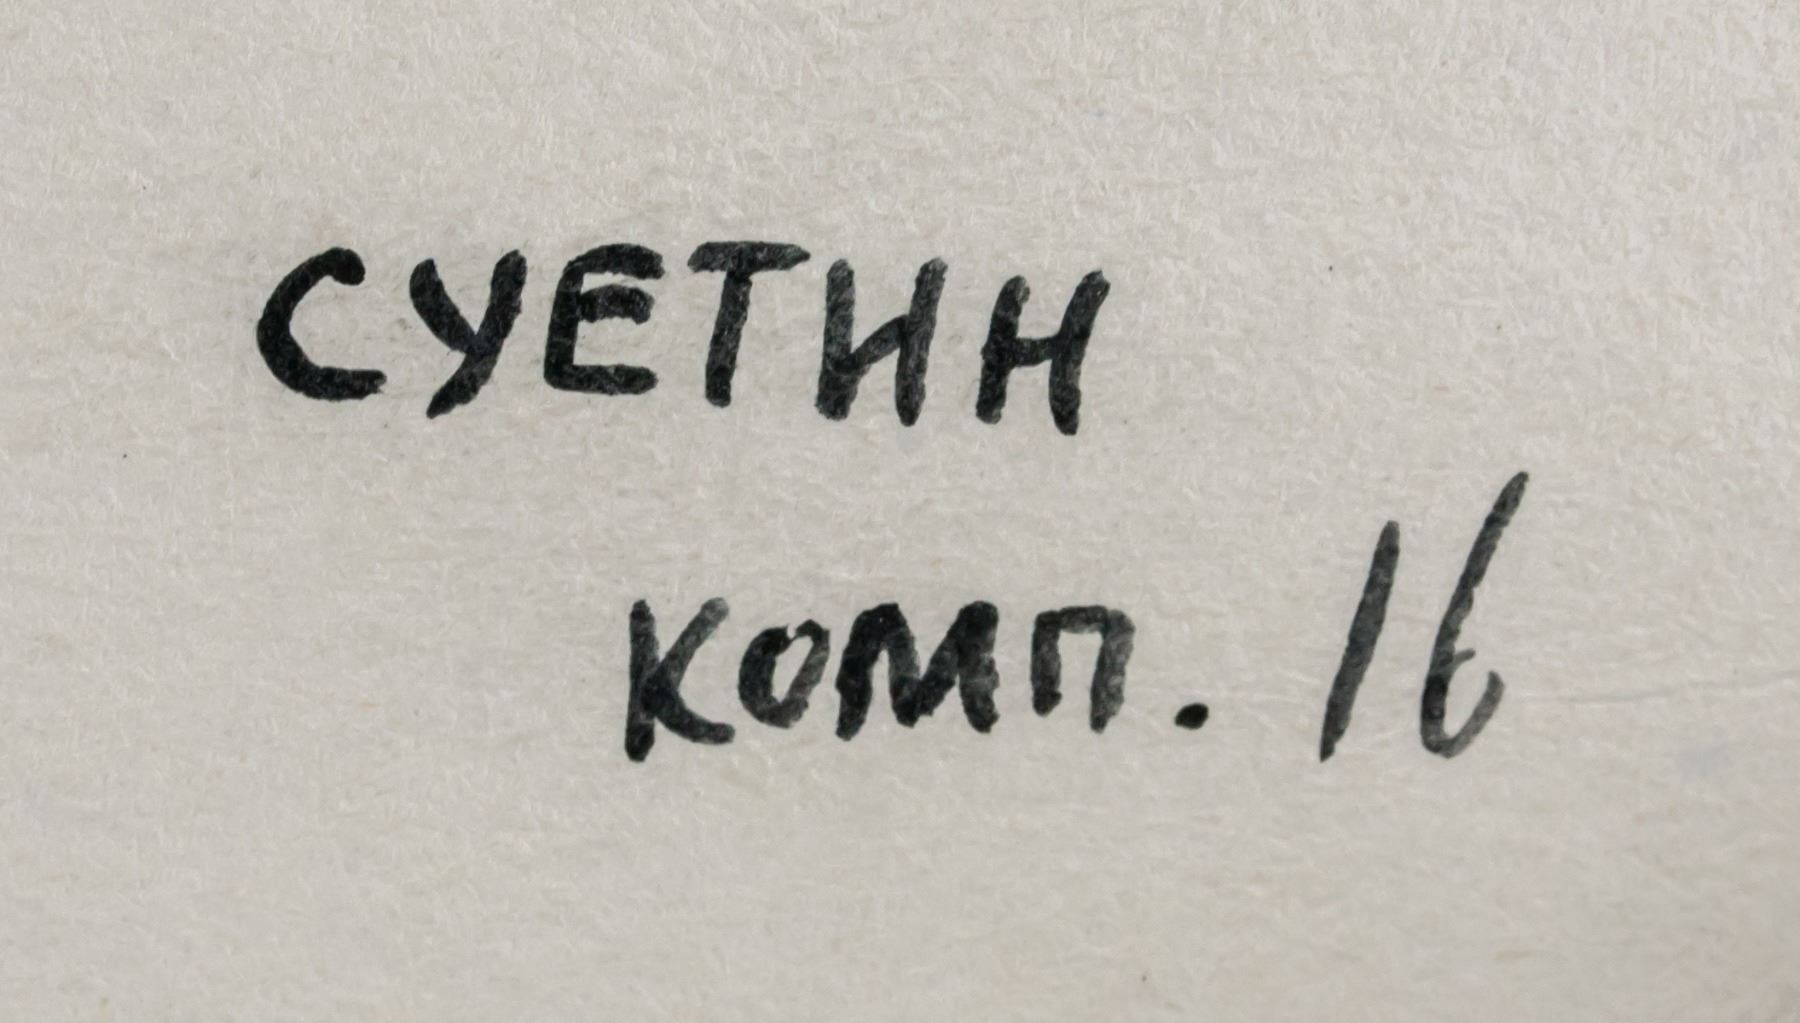 СУЕТИН
КОМП. 16